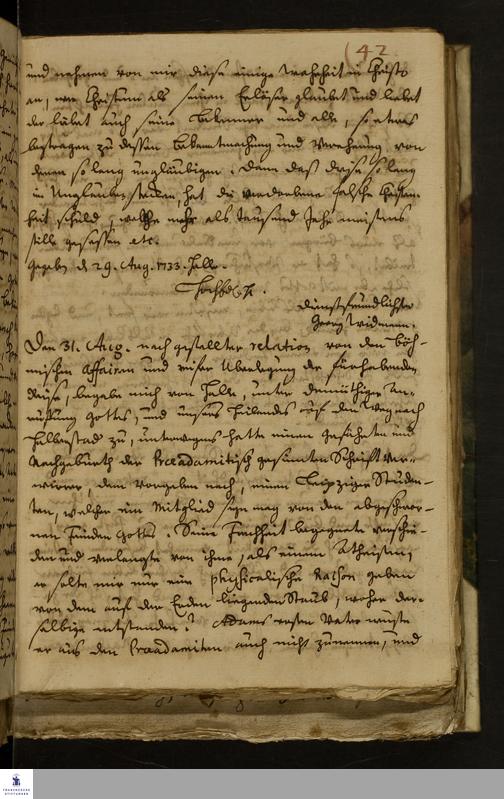 (42
und nehmen von mir diese einige Wahrheit in Christo
an, wer Christum als seinen Erlöser glaubet und liebet
der liebet auch seine Bekenner und alle, so etwas
beytragen zu dessen Bekantmachung und Verehrung, von
denen so lang ungläubigen. Denn daß diese so lang
im Unglauben stecken, hat die verdorbene falsche Christen-
heit schuld, welche mehr als tausend Jahr meistens
stille gesessen etc.
Gegeben d 29. Aug. 1733. Halle.
dienstfreundlichster
Georg Widmann.
Den 31. Aug. nach gestellter relation von den Böh-
mischen Affairen und reifer Überlegung der fürhabenden
Reise, begabe mich von Halle, unter demüthiger An-
ruffung Gottes, und unsers Heilandes auf den Weg nach
Halberstad zu, unterwegens hatte einen Gefährten und
Nachgeburth der Praeadamitisch gesinnten Schrifft Ver-
wirrer, dem Vorgeben nach, einen Leipziger Studen-
ten, welcher ein Mitglied seyn mag von den abgeschwor-
nen Feinden Gottes. Seine Frechheit begegnete verschie-
den und verlangte von ihme, als einem Atheisten,
er solte mir nur eine physicalische Raison geben
von dem auf der Erden liegenden Staub, woher der-
selbige entstanden? Adams ersten Vater wuste
er aus den Praeadamiten auch nicht zu nennen, und
FRANCKESCHE
STIFTUNGEN